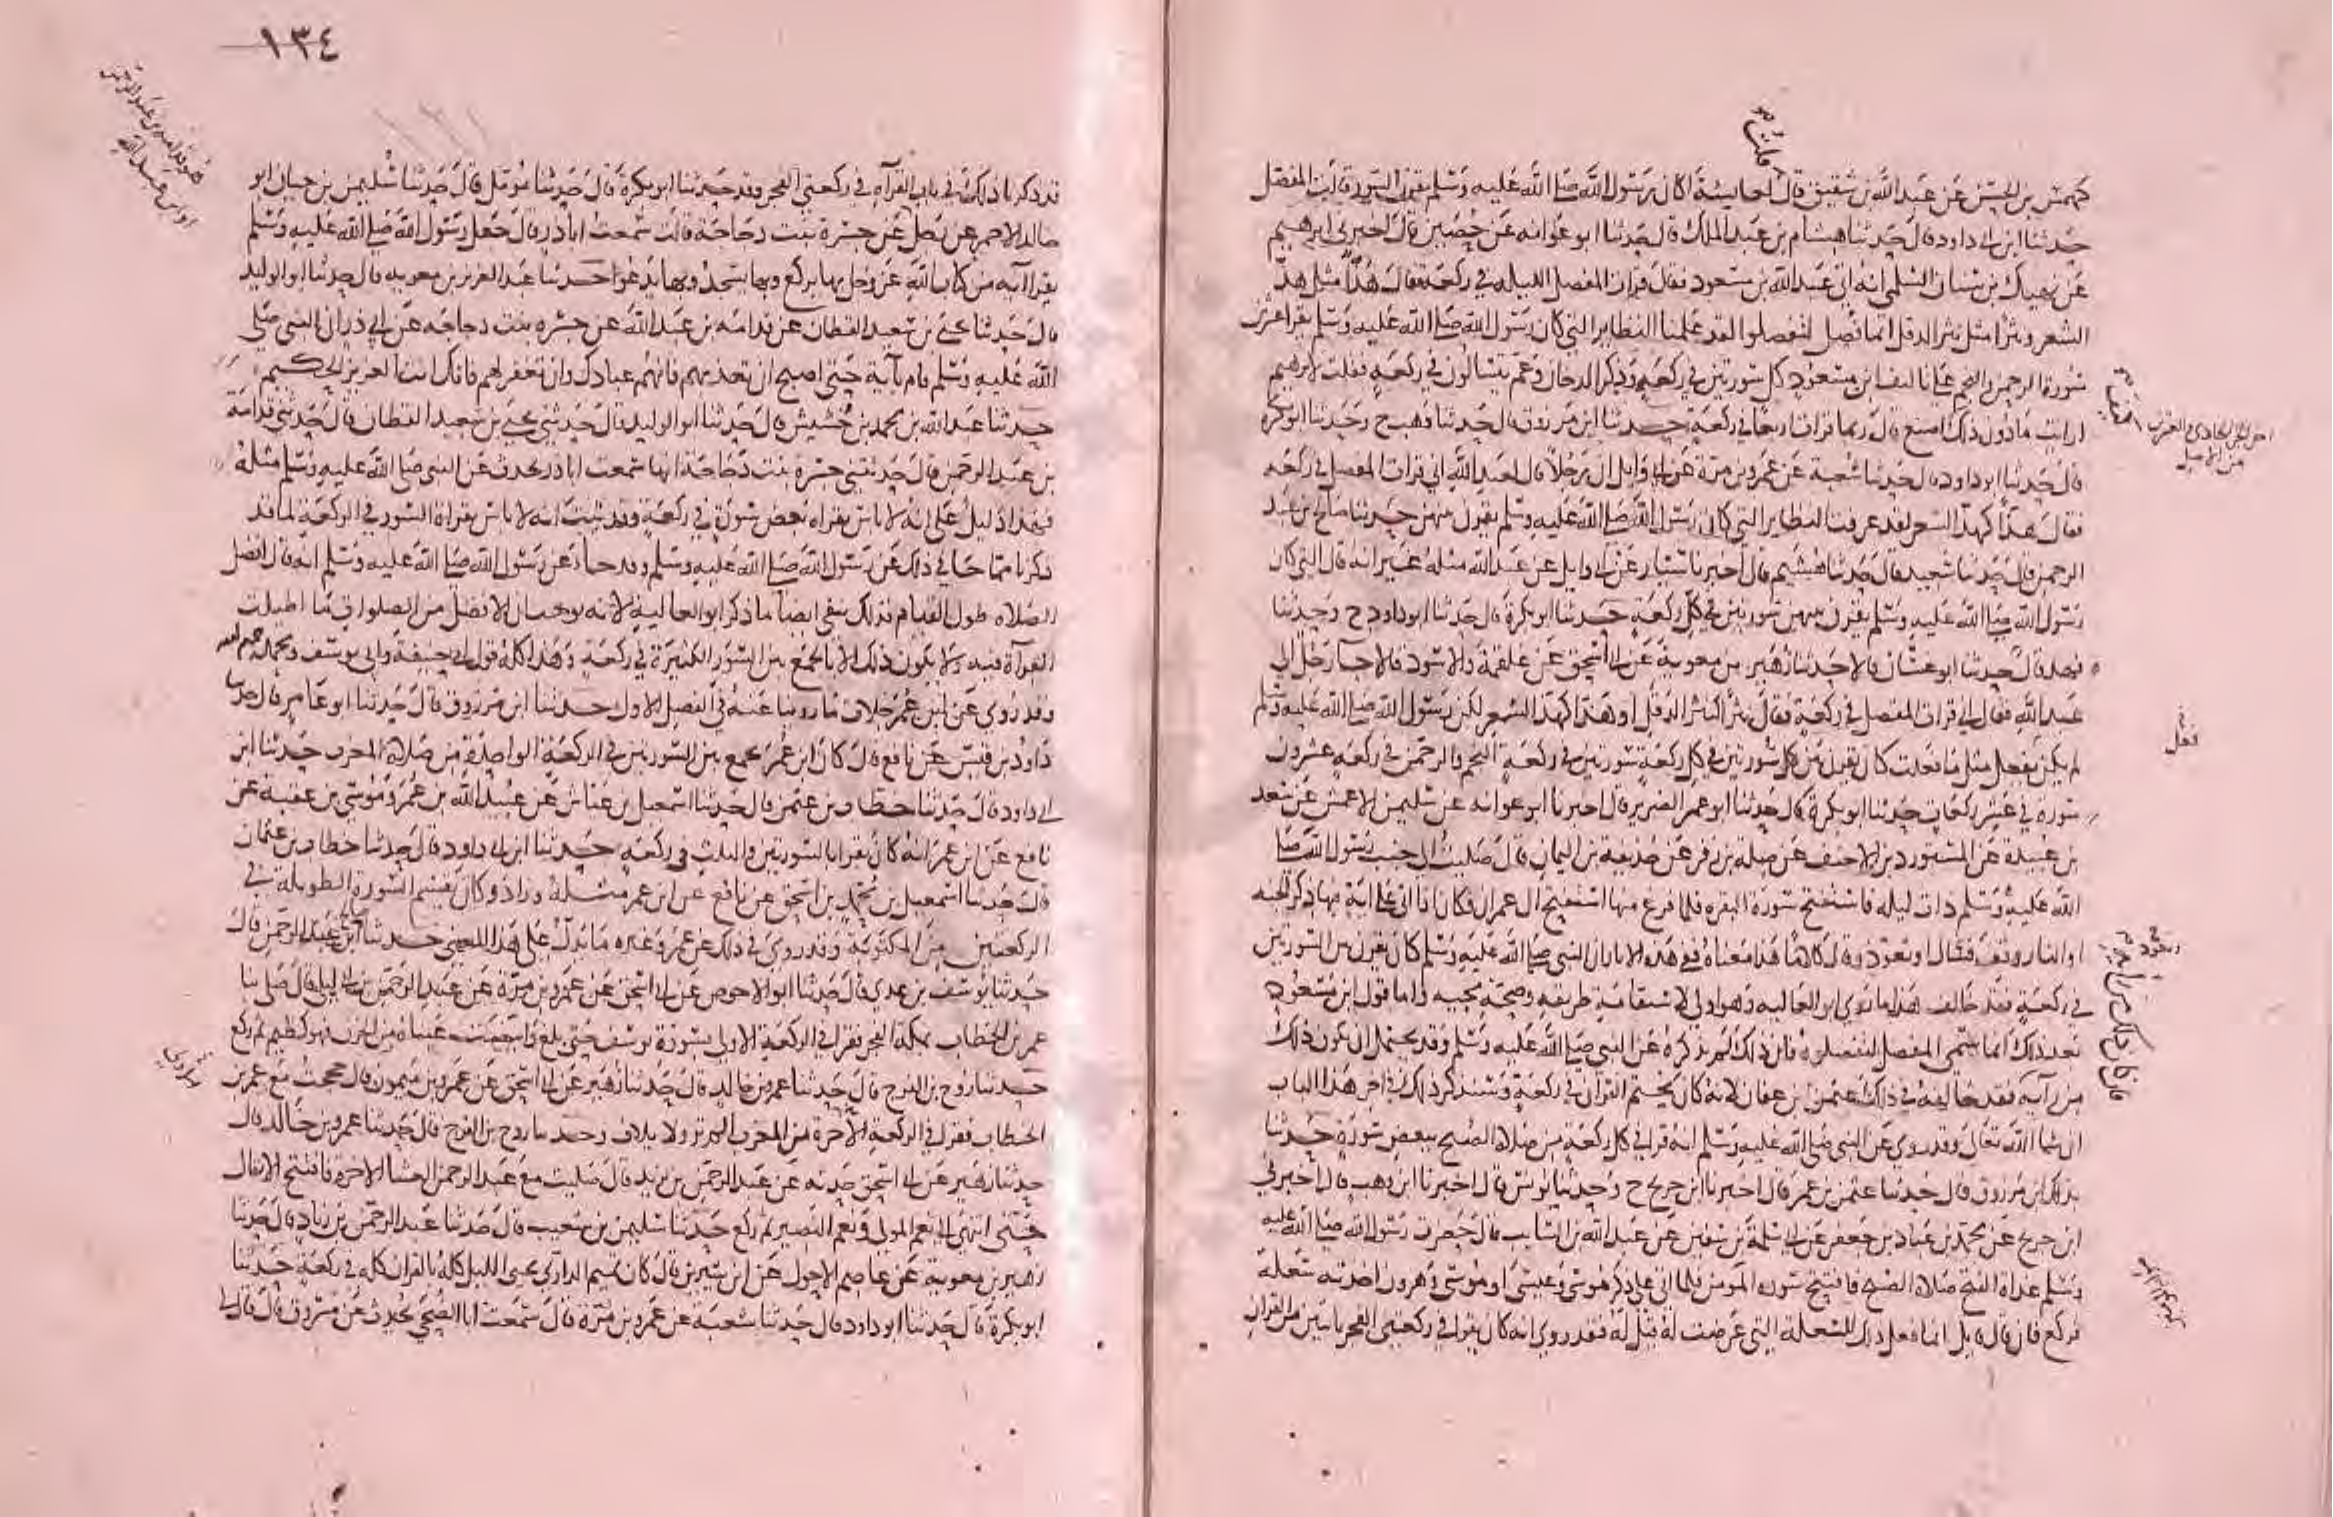 كهمس بن الحسن عن عبد الله بن شقيق قال قلت لعايشة اكان رسول الله صلى الله عليه وسلم يقرن السور قالت المفصل
حدثنا ابن ابي داود قال حدثنا هشام بن عبد الملك قال حدثنا ابو عوانه عن حصين قال اخبرني ابرهيم
عن نهيك بن سنان السلمي انه اتى عبد الله بن مسعود فقال قرات المفصل الليله في ركعة فقال هذا مثل هذ
الشعر ونثرا مثل نثر الدقل انما فصل لتفصلوا لقد علمنا النظاير التي كان رسول الله صلى الله عليه وسلم يقرا عشرين
سورة الرحمن والنجم على تاليف ابن مسعود كل سورتين في ركعة وذكر الدخان وعم يتسالون في ركعة فقلت لابرهيم
ارايت ما دون ذلك اصنع قال ربما قرات اربعا في ركعة حدثنا ابن مرزوق قال حدثنا وهب ح وحدثنا ابو بكرة
قال حدثنا ابو داود قال حدثنا شعبة عن عمرو بن مرة عن ابي وايل ان رجلا قال لعبد الله اني قرات المفصل في ركعة
فقال هذا كهذ الشعر لقد عرفت النظاير التي كان رسول الله صلى الله عليه وسلم يقرن بينهن حدثنا صالح بن عبد
الرحمن قال حدثنا سعيد قال حدثنا هشيم قال اخبرنا سيار عن ابي وايل عن عبد الله مثله غير انه قال التي كان
رسول الله صلى الله عليه وسلم يقرن بينهن سورتين في كل ركعة حدثنا ابو بكرة قال حدثنا ابو داود ح وحدثنا
فهد قال حدثنا ابو غسان قالا حدثنا زهير بن معوية عن ابي اسحق عن علقمة والاسود قالا جا رجل الى
عبد الله فقال اني قرات المفصل في ركعة فقال نثرا كنثر الدقل او هذا كهذ الشعر لكن رسول الله صلى الله عليه وسلم
لم يكن يفعل مثل ما فعلت كان يقرن بين كل سورتين في كل ركعة سورتين في ركعة النجم والرحمن في ركعة عشرون
سورة في عشر ركعات حدثنا ابو بكرة قال حدثنا ابو عمر الضرير قال اخبرنا ابو عوانه عن سليمن الاعمش عن سعد
بن عبيدة عن المستورد بن الاحنف عن صله بن زفر عن حذيفة بن اليمان قال صليت الى جنب رسول الله صلى
الله عليه وسلم ذات ليله فاستفتح سورة البقره فلما فرغ منها استفتح ال عمران فكان اذا اتى على اية فيها ذكر الجنه
او النار وقف فسال او تعوذ او قال كلاما هذا معناه ففي هذه الاثار ان النبي صلى الله عليه وسلم كان يقرن بين السورتين
في ركعة فقد خالف هذا ما روى ابو العاليه وهو اولى لاستقامة طريقه وصحة مجيه واما قول ابن مسعود
بعد ذلك انما سمي المفصل لتفصلوه فان ذلك لم يذكره عن النبي صلى الله عليه وسلم وقد يحتمل ان يكون ذلك
من رايه فقد خالفه في ذلك عثمن بن عفان لانه كان يختم القران في ركعة وسنذكر ذلك في اخر هذا الباب
ان شا الله تعالى وقد روي عن النبي صلى الله عليه وسلم انه قرا في كل ركعة من صلاة الصبح ببعض سورة حدثنا
بذلك ابن مرزوق قال حدثنا عثمن بن عمر قال اخبرنا ابن جريج ح وحدثنا يونس قال اخبرنا ابن وهب قال اخبرني
ابن جريج عن محمد بن عباد بن جعفر عن ابي سلمة بن سفين عن عبد الله بن السايب قال حضرت رسول الله صلى الله عليه
وسلم غداة الفتح صلاة الصبح فافتتح سورة المومنين فلما اتى على ذكر موسى وعيسى او موسى وهرون اخذته سعلة
فركع فان قال قايل انما فعل ذلك للسعلة التي عرضت له قيل له فقد روي انه كان يقرا في ركعتي الفجر بايتين من القران
قلت
من الاصل
فعل
١٣٤
قد ذكرنا ذلك في باب القرآة في ركعتي الفجر وقد حدثنا ابو بكرة قال حدثنا مومل قال حدثنا سليمن بن حيان ابو
خالد الاحمر عن رجل عن جسرة بنت دجاجة قالت سمعت اباذر قال جعل رسول الله صلى الله عليه وسلم
يقرا اية من كتاب الله عز وجل بها يركع وبها يسجد وبها يدعوا حدثنا عبد العزيز بن معوية قال حدثنا ابو الوليد
قال حدثنا يحيى بن سعيد القطان عن قدامة بن عبد الله عن جسره بنت دجاجه عن ابي ذر ان النبي صلى
الله عليه وسلم قام بآية حتى اصبح ان تعذبهم فانهم عبادك وان تغفر لهم فانك انت العزيز الحكيم
حدثنا عبد الله بن محمد بن خشيش قال حدثنا ابو الوليد قال حدثني يحيى بن سعيد القطان قال حدثني قدامة
بن عبد الرحمن قال حدثتني جسرة بنت دجاجة انها سمعت اباذر يحدث عن النبي صلى الله عليه وسلم مثله
فهذا دليل على انه لا باس بقراه بعض سورة في ركعة وقد ثبت انه لا باس بقراة السور في الركعة لما قد
ذكرنا مما جا في ذلك عن رسول الله صلى الله عليه وسلم وقد جاء عن رسول الله صلى الله عليه وسلم انه قال افضل
الصلاه طول القيام فذلك ينفي ايضا ما ذكر ابو العالية لانه يوجب ان الافضل من الصلوات ما اطيلت
القرآة فيه ولا يكون ذلك الا بالجمع بين السور الكثيرة في ركعة وهذا كله قول ابي حنيفة وابي يوسف ومحمد رحمهم الله
وقد روي عن ابن عمر خلاف ما روينا عنه في الفصل الاول حدثنا ابن مرزوق قال حدثنا ابو عامر قال حدثنا
داود بن قيس عن نافع قال كان ابن عمر يجمع بين السورتين في الركعة الواحدة من صلاة المغرب حدثنا ابن
ابي داود قال حدثنا خطاب بن عثمن قال حدثنا اسمعيل بن عياش عن عبيد الله بن عمر وموسى بن عقبة عن
نافع عن ابن عمر انه كان يقرا بالسورتين والثلث في ركعة حدثنا ابن ابي داود قال حدثنا خطاب بن عثمان
قال حدثنا اسمعيل بن محمد بن اسحق عن نافع عن ابن عمر مثله وزاد وكان يقسم السورة الطويلة في
الركعتين من المكتوبة وقد روي في ذلك عن عمر وغيره ما يدل على هذا المعنى حدثنا صالح بن عبد الرحمن قال
حدثنا يوسف بن عدي قال حدثنا ابو الاحوص عن ابي اسحق عن عمرو بن مرة عن عبد الرحمن بن ابي ليلى قال صلى بنا
عمر بن الخطاب بمكة الفجر فقرا في الركعة الاولى بسورة يوسف حتى بلغ وابيضت عيناه من الحزن فهو كظيم ثم ركع
حدثنا روح بن الفرج قال حدثنا عمرو بن خالد قال حدثنا زهير عن ابي اسحق عن عمرو بن ميمون قال حججت مع عمر بن
الخطاب فقرا في الركعة الآخرة من المغرب الم تر ولايلاف وحدثنا روح بن الفرج قال حدثنا عمرو بن خالد قال
حدثنا زهير عن ابي اسحق حدثه عن عبد الرحمن بن يزيد قال صليت مع عبد الرحمن العشا الاخرة فافتتح الانفال
حتى انتهى الى نعم المولى ونعم النصير ثم ركع حدثنا سليمن بن شعيب قال حدثنا عبد الرحمن بن زياد قال حدثنا
زهير بن معوية عن عاصم الاحول عن ابن سيرين قال كان تميم الداري يحيي الليل كله بالقران كله في ركعة حدثنا
ابو بكرة قال حدثنا ابو داود قال حدثنا شعبة عن عمرو بن مرة قال سمعت ابا الضحى يحدث عن مسروق قال قال لي
هو قدامة بن عبد الرحمن
او ابن عبد الله